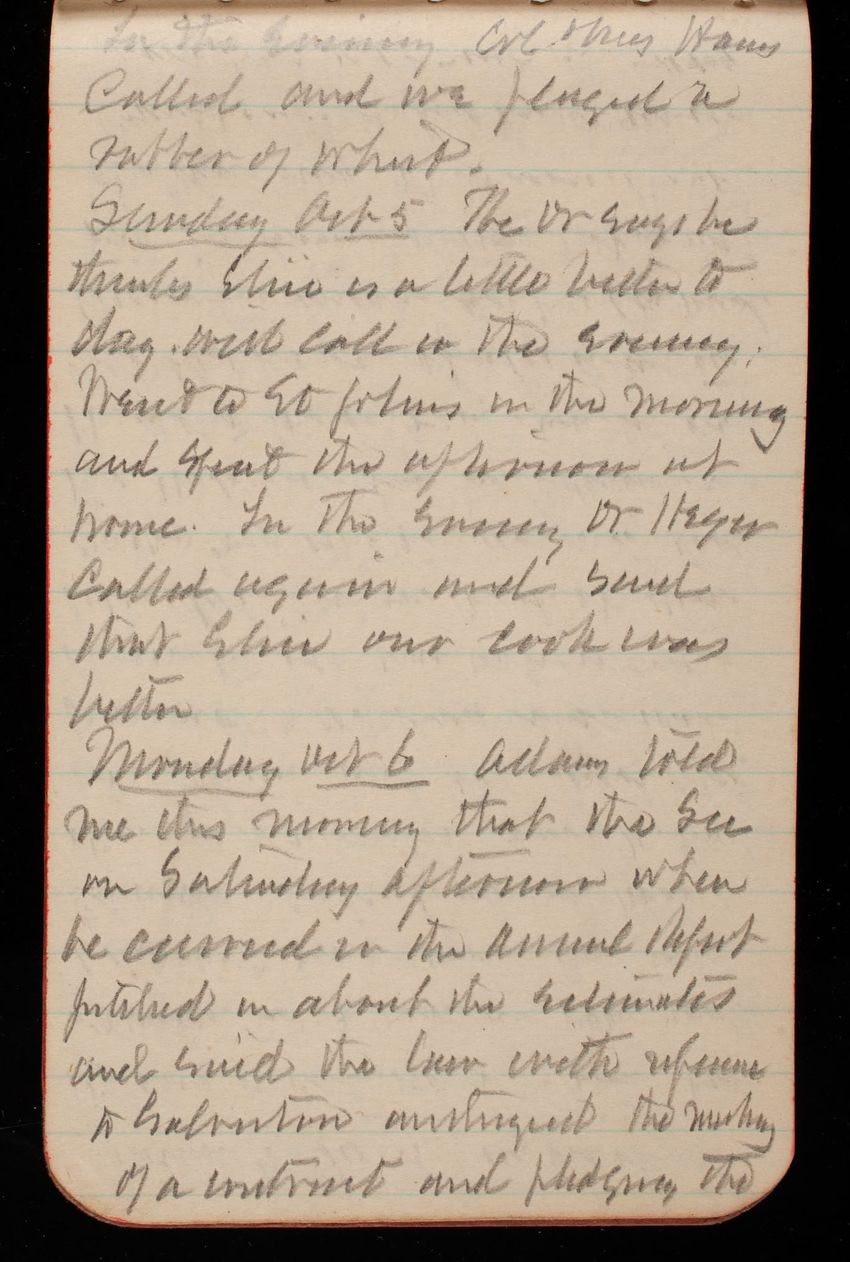 In the Evening Col & Mrs Haws
Called and we played a
rubber of Whist.
Sunday Oct 5 The Dr says he
thinks Elsie is a little better to
day. will call in the evening.
Went to St Johns in the morning
and spent the afternoon at
home. In the Evening Dr Heger
Called again and said
that Elsie our cook was
better
Monday Oct 6 Adams told
me this morning that the Sec
on Saturday afternoon when
he carried in the Annual Report
pitched in about the estimates
and said the law with
to Galveston the making
of a contract and pledging the